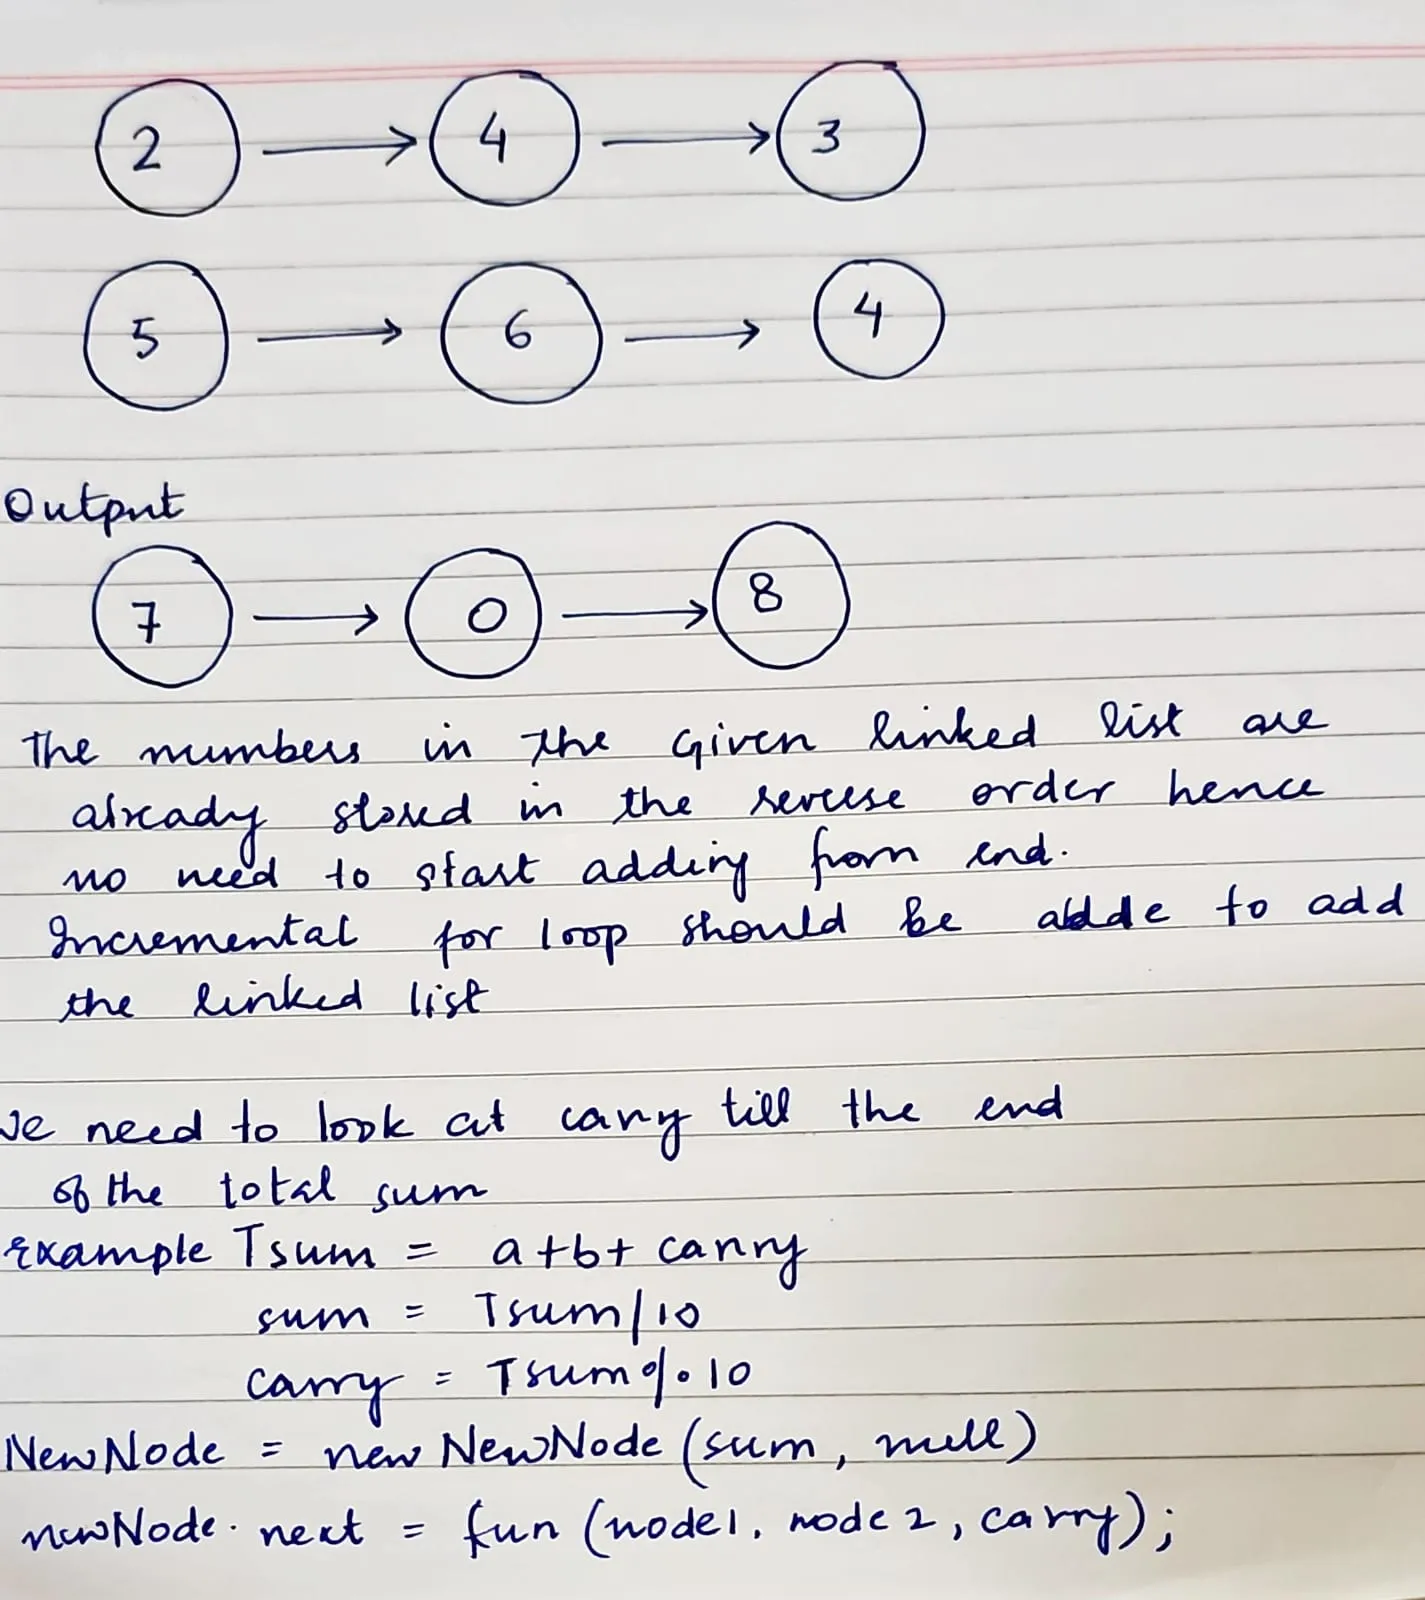 2 → 4 → 3
5 → 6 → 4
Output
7 → 0 → 8
The numbers in the Given linked list are
already stored in the reverse order hence
no need to start adding from end.
Incremental for loop should be adde to add
the linked list
We need to look at carry till the end
of the total sum
Example Tsum = a+b+ carry
sum = Tsum/10
carry = Tsum%10
NewNode = new NewNode (sum, null)
newNode. next = fun (node1, node2, carry);